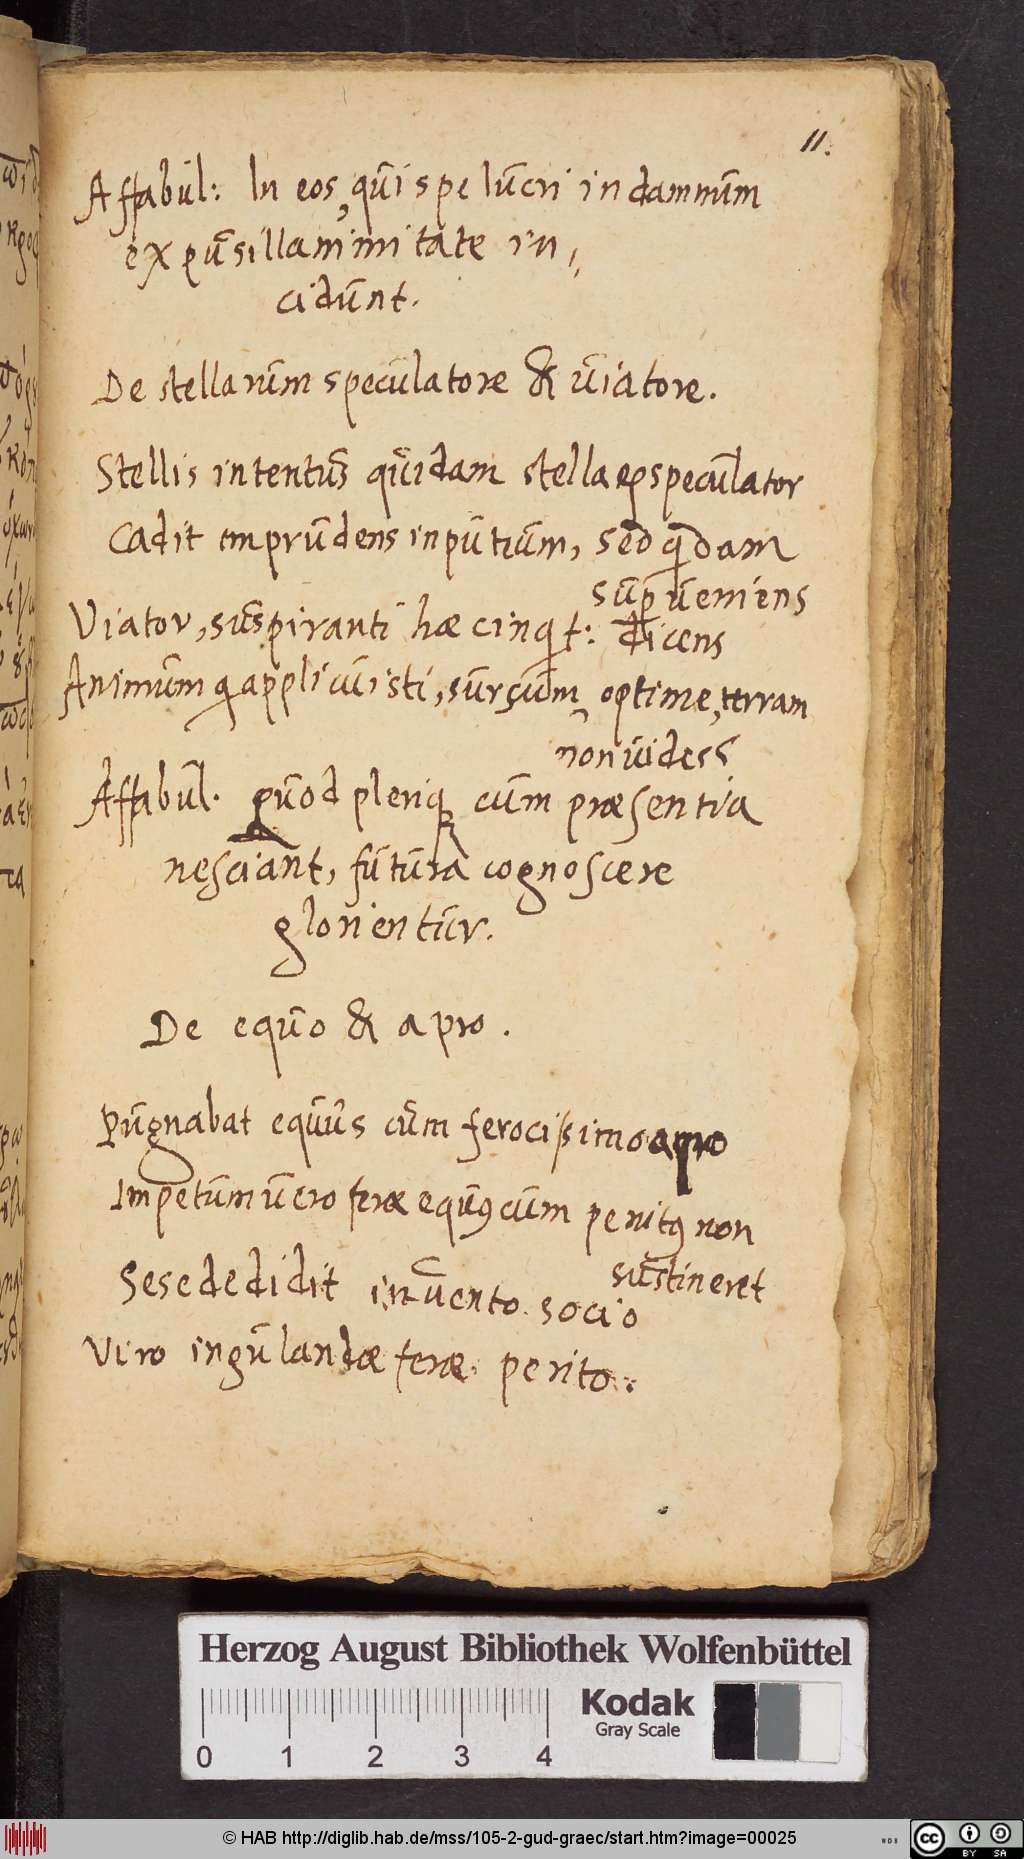 11.
Affabul: In eos, qui spe lucri in damnum
ex pusillanimitate in,,
cidunt.
De stellarum speculatore & viatore.
Stellis intentus quidam stellaeqȝ speculator
Cadit imprudens in putium, sed quidam
superveniens
Viator, suspiranti haec inquit: dicens
Animum qui applicuisti, sursum, optime, terram
non videss
Affabul. quod pleriqȝ cum praesentia
nesciant, futura cognoscere
glorientur.
De equo & apro.
Pugnabat equus cum ferocissimo apro
Impetum vero ferae equꝰ cum penitꝰ non
sustineret
Sese dedidit invento socio
Viro ingulandae ferae perito.
Herzog August Bibliothek Wolfenbüttel
Kodak
Gray Scale
0 1 2 3 4
© HAB http://diglib.hab.de/mss/105-2-gud-graec/start.htm?image=00025
WDB
cc BY SA